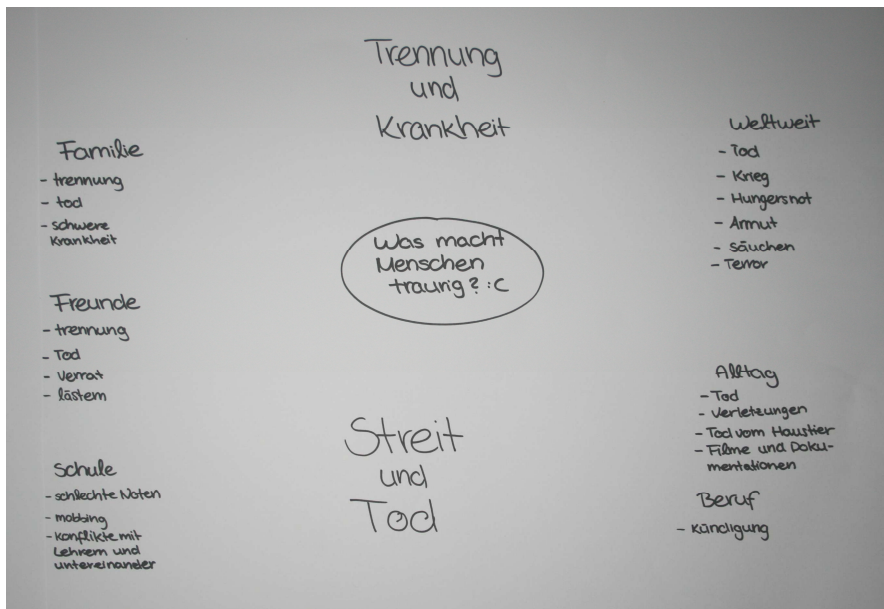 Trennung
und
Krankheit
Familie
- trennung
- tod
- schwere
Krankheit
Freunde
- trennung
- Tod
- Verrat
- lästern
Schule
- schlechte Noten
- mobbing
- Konflikte mit
Lehrern und
untereinander
Was macht
Menschen
traurig? :C
Streit
und
Tod
Weltweit
- Tod
- Krieg
- Hungersnot
- Armut
- säuchen
- Terror
Alltag
- Tod
- Verletzungen
- Tod vom Haustier
- Filme und Doku-
mentationen
Beruf
- Kündigung